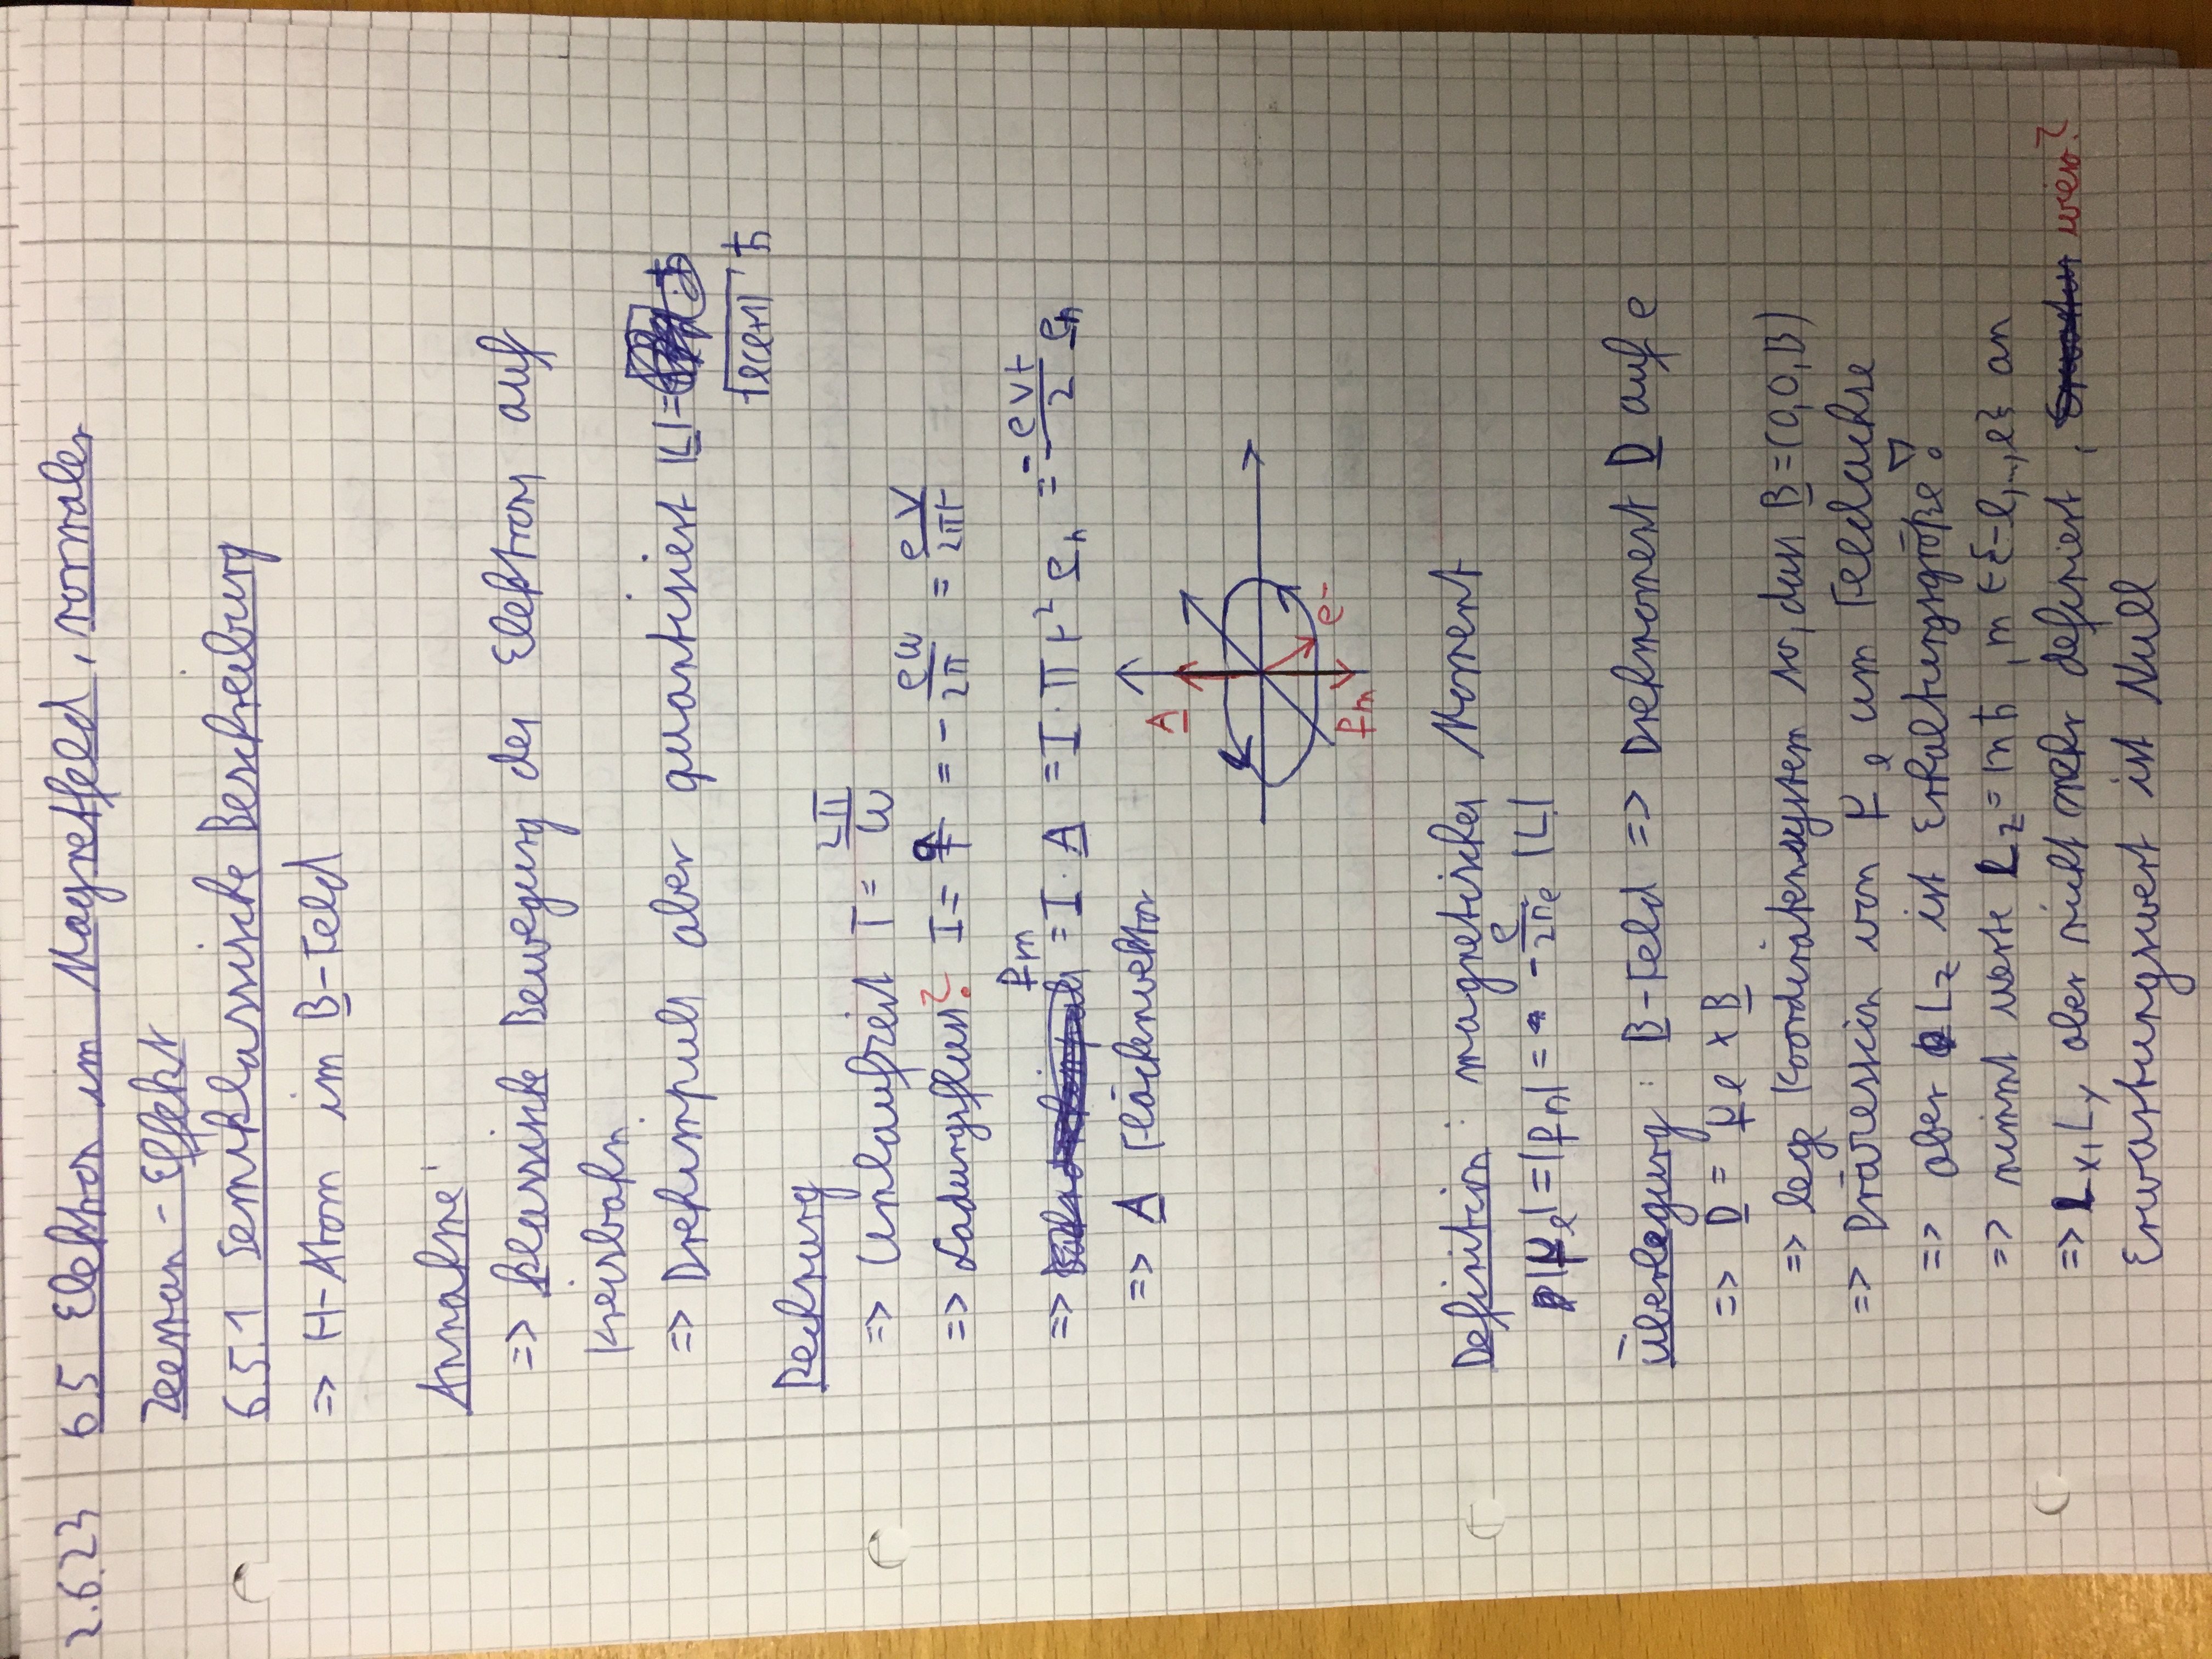 2.6.23 6.5 Elektron im Magnetfeld, normaler
Zeeman-Effekt
6.5.1 Semiklassische Beschreibung
=> H-Atom im B-Feld
Annahme:
=> klassische Bewegung des Elektrons auf
Kreisbahn
=> Drehimpuls aber quantisiert |L| =
√l(l+1) ħ
Rechnung
=> Umlaufzeit T = 2π/ω
=> Ladungsfluss? I = q/T = - eω/2π = e v/2πr
=> p_m = I · A = I · π r² e_n = - e v r/2 e_n
=> A Flächenvektor
A
e-
p_m
Definition: magnetisches Moment
|μ_l| = |p_m| = - e/2m_e |L|
Überlegung: B-Feld => Drehmoment D auf e
=> D = μ_l × B
=> lege Koordinatensystem so, dass B = (0,0,B)
=> Präzession von μ_l um Feldachse
=> aber L_z ist Erhaltungsgröße!
=> nimmt werte L_z = mħ, m ∈ {-l,..,l} an
=> L_x, L_y aber nicht mehr definiert, wieso?
Erwartungswert ist Null